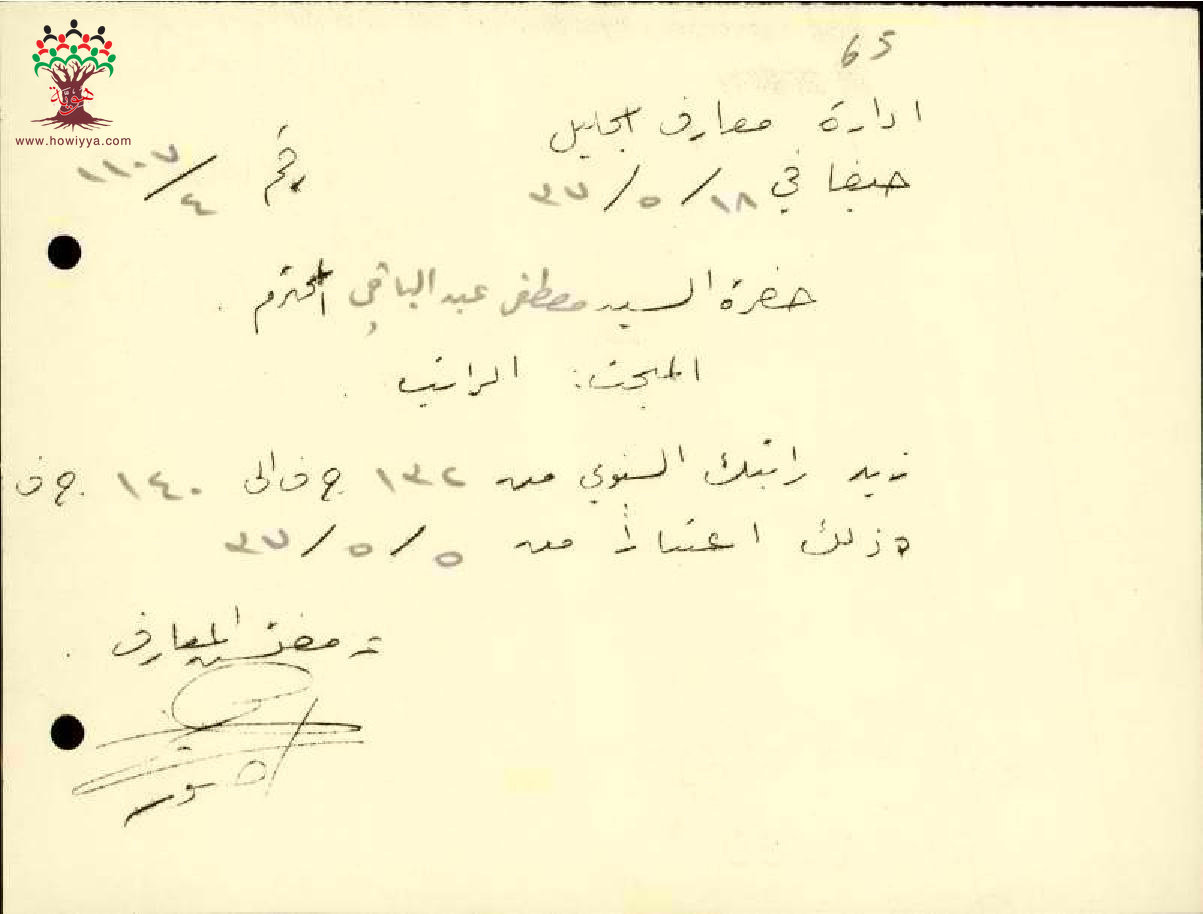 65
هوية
www.howiyya.com
ادارة معارف الجليل
حيفا في ١٨/٥/٣٧ رقم ٤/١١٠٧
حضرة السيد مصطفى عبد الباقي المحترم .
المبحث: الراتب .
زيد راتبك السنوي من ١٣٢ ج ف الى ١٤٠ ج ف.
وذلك اعتباراً من ٥/٥/٣٧
مفتش المعارف .